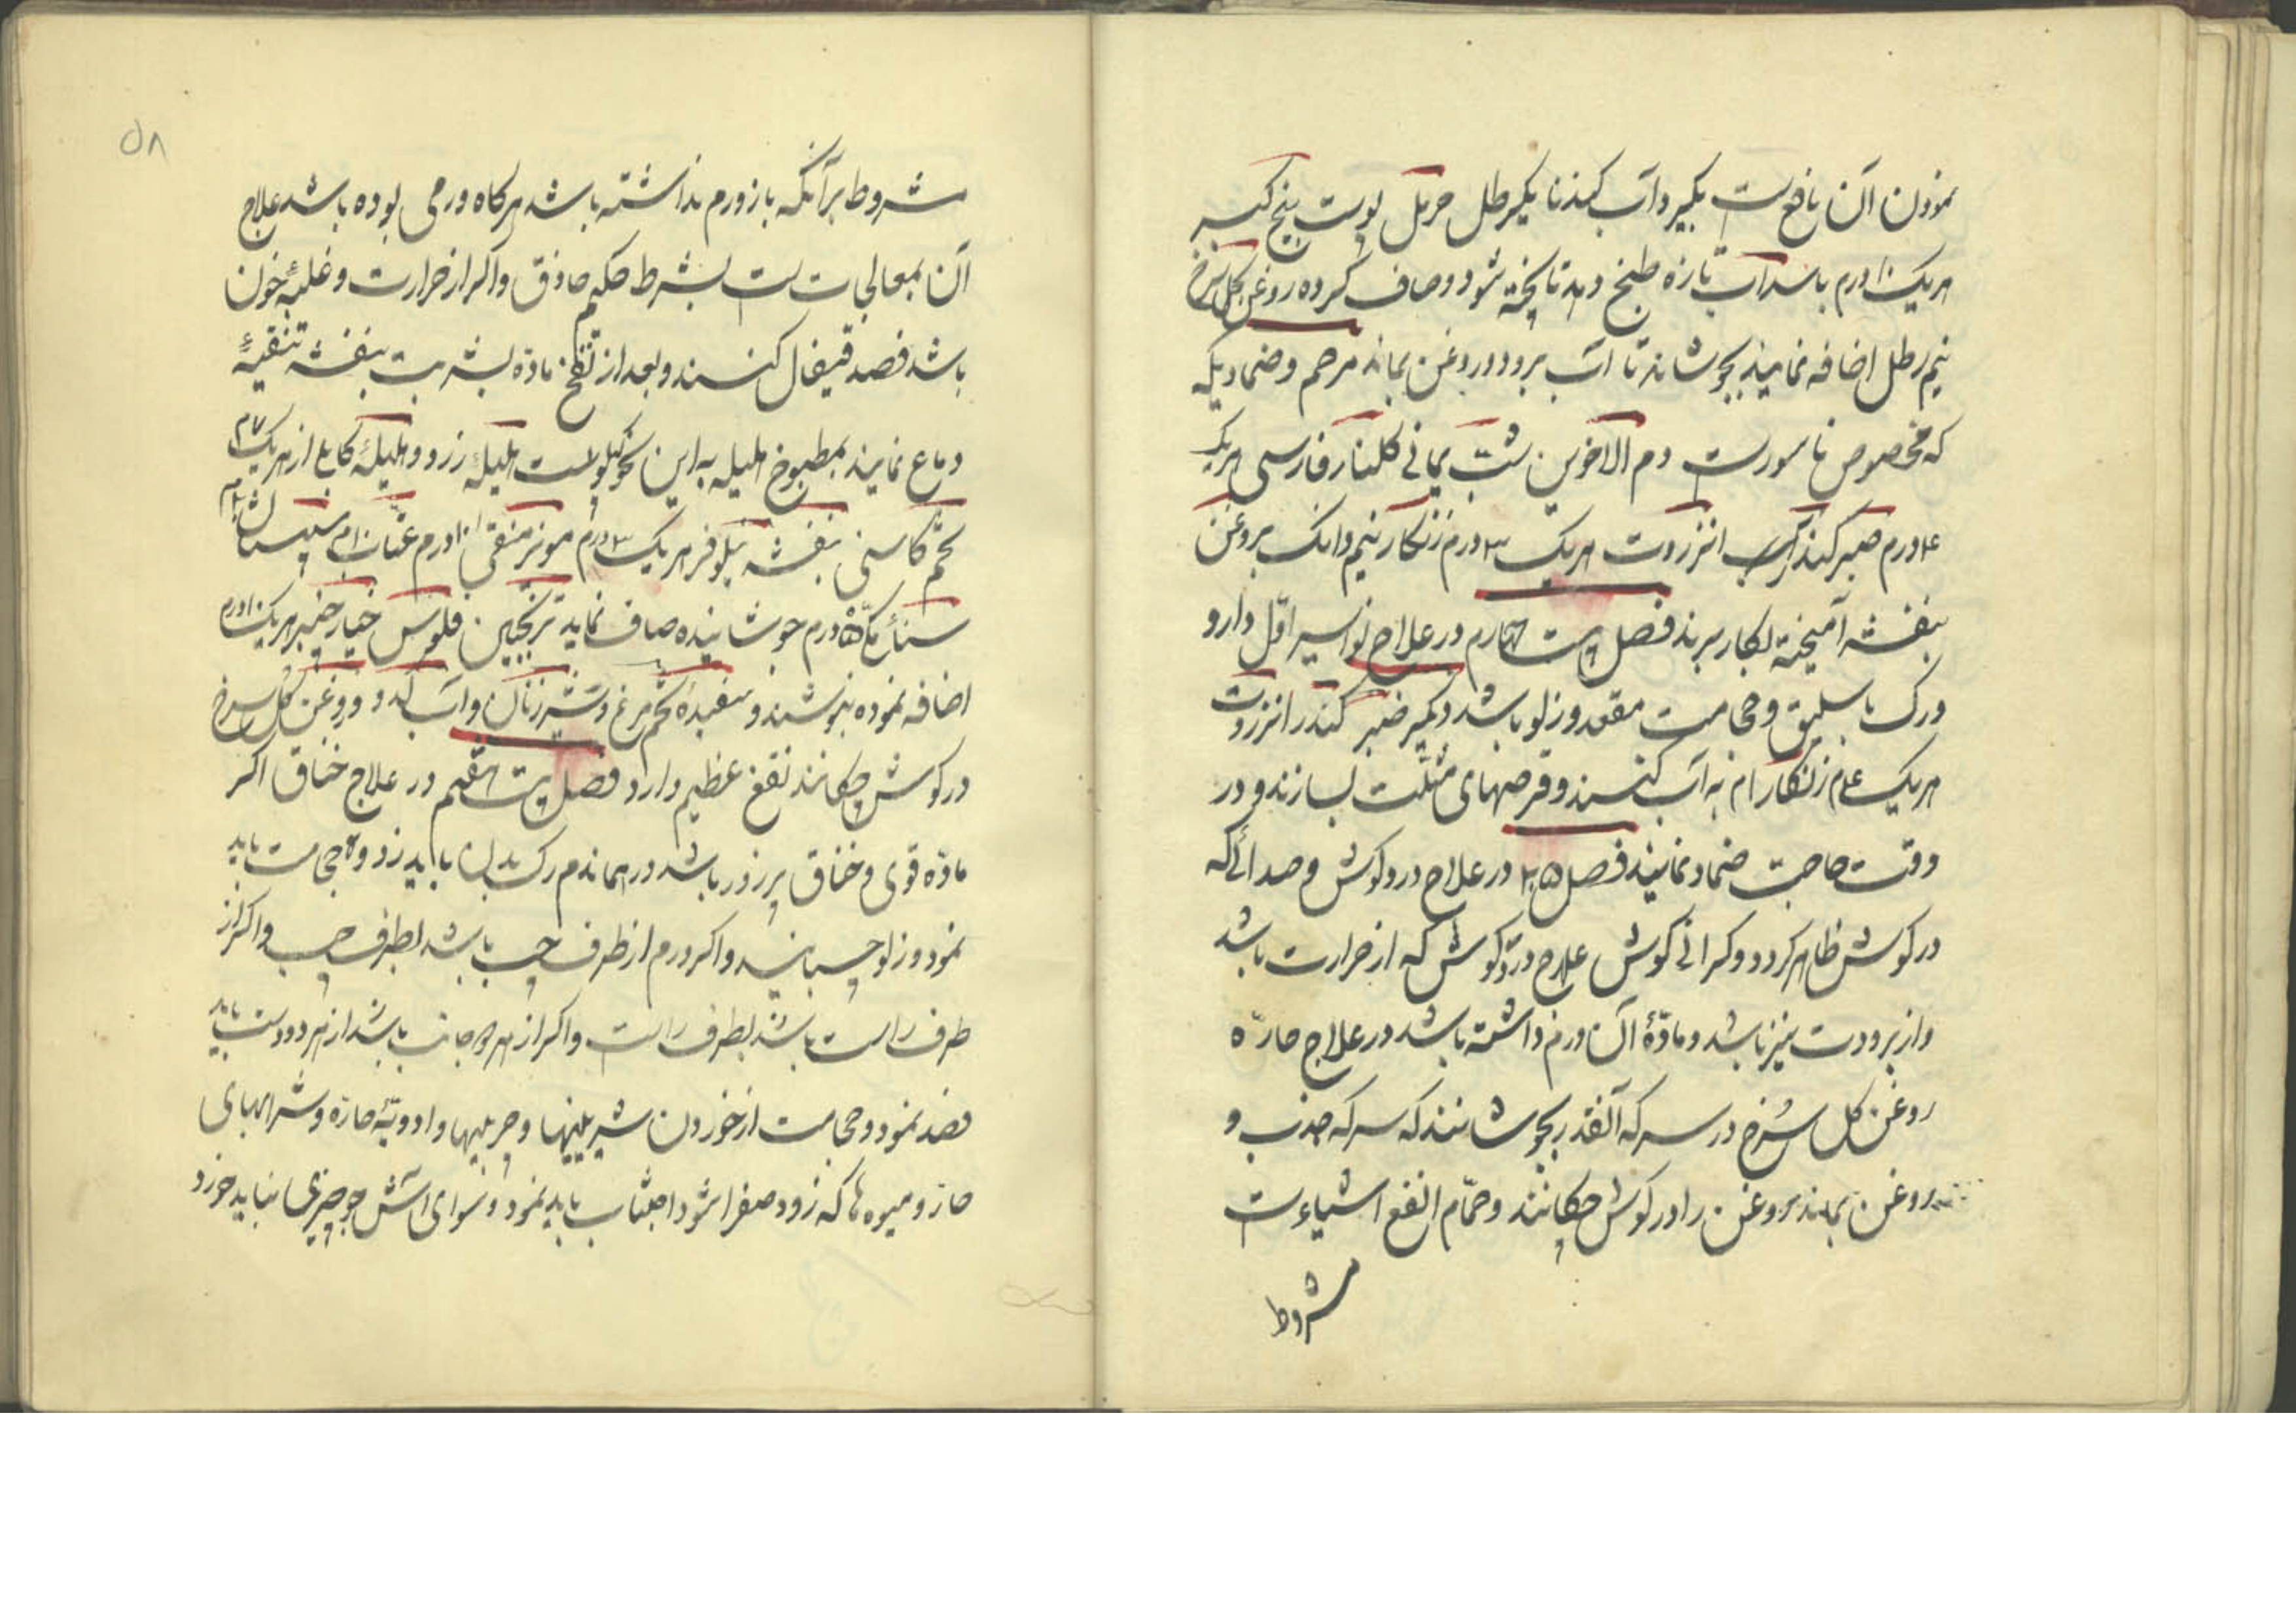 نمودن آن نافع است بگیرد آب کندنا یکرطل حرمل پوست بیخ کبر
هریک ۱۰ درم با سداب تازه طبخ دهد تا پخته شود و صاف کرده روغن کل سرخ
نیم رطل اضافه نمایند بجوشاند تا آب برود و روغن بماند مرحم و ضماد دیکه
که مخصوص ناسورست دم الاخوین شب یمانی کلنار فارسی هریک
۴ درم صبر کندر انزروت هریک ۳ درم زنکار نیم دانک بروغن
بنفشه آمیخته بکار برند فصل بیست چهارم در علاج بواسیر اول دارو
و رک باسلیق و حجامت مقعد و زلو باشد دیکر صبر کندر انزروت
هریک ۴م زنکار ام به آب کنند و قرصهای مثلث بسازند و در
وقت حاجت ضماد نمایند فصل ۲۵ در علاج درد کوش و صدائی که
در کوش ظاهر کردد و کرانی کوش علاج درد کوش که از حرارت باشد
و از برودت نیز باشد و مادۀ آن ورم داشته باشد در علاج حارّه
روغن کل سرخ در سرکه آنقدر بجوشانند که سرکه جذب و
روغن بماند روغن را در کوش چکانند و حمّام انفع اشیاءست
شروط
۵۸
شروط برآنکه باز ورم نداشته باشد هرکاه ورمی بوده باشد علاج
آن بمعالجات است بشرط حکیم حاذق و اکر از حرارت و غلبۀ خون
باشد فصد قیفال کنند و بعد از نضج مادّه بشربت بنفشه تنقیۀ
دماغ نمایند بمطبوخ هلیله به این نحو هلیلۀ زرد و هلیلۀ کابلی از هریک ۷م
تخم کاسنی بنفشه نیلوفر هریک ۳ درم مویز منقی ۱۰ درم عناب ۲۰م سپستان
سناء مکی ۵ درم جوشانیده صاف نماید ترنجبین فلوس خیارچنبر هریک ۱۰ درم
اضافه نموده بنوشند و سفیدۀ تخم مرغ و شیر زنان و آب کدو و روغن کل سرخ
در کوش چکانند نفع عظیم دارد فصل بیست هفتم در علاج خناق اکر
مادّه قوی و خناق پر زور باشد در همان دم رک بدن باید زد و حجامت باید
نمود و زلو چسبانید و اکر ورم از طرف چپ باشد بطرف چپ و اکر از
طرف راست باشد بطرف راست و اکر از هردو جانب باشد از هر دو دست باید
فصد نمود و حجامت از خوردن شیرینیها و چربیها و ادویۀ حارّه و شرابهای
حارّ و میوه ها که زود صفرا شود اجتناب باید نمود و سوای آش جو چیزی نباید خورد